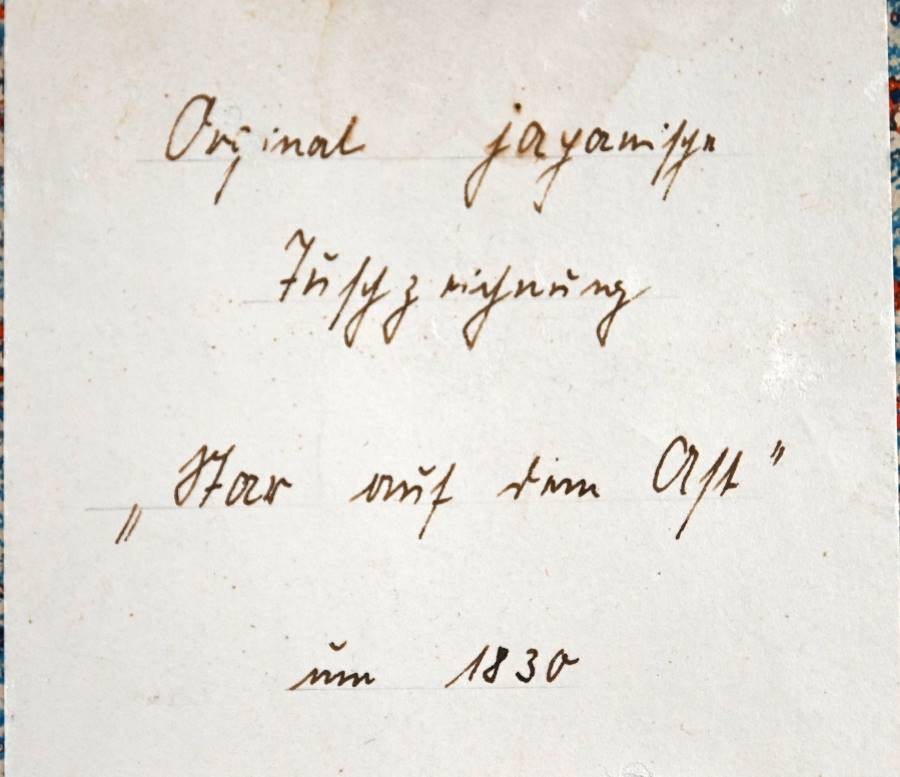 Original japanische
Tuschzeichnung
„Star auf dem Ast"
um 1830